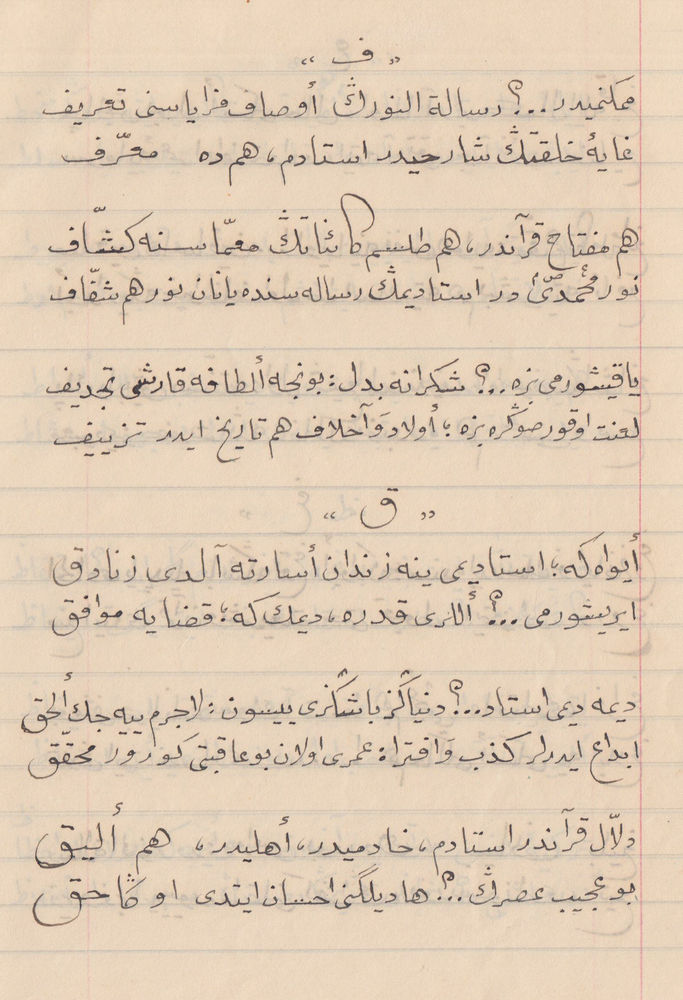 « ف »
ممكنميدر...؟ رسالة النورڭ أوصاف مزاياسنى تعريف
غايۀ خلقتڭ شارحيدر استادم، هم ده معرّف
هم مفتاح قرآندر، هم طلسم كائناتڭ معمّاسنه كشّاف
نور محمّدىٔ در استاديمڭ رساله سنده يانان نور هم شفّاف
ياقيشورمى بزه...؟ شكرانه بدل: بونجه ألطافه قارشى تجديف
لعنت اوقور صوڭره بزه؛ أولاد وَ أخلاف هم تاريخ ايدر تزييف
« ق »
أيواه كه؛ استاديمى ينه زندان أسارته آلدى زنادق
ايريشورمى...؟ أللرى قدره، ديمك كه؛ قضايه موافق
ديمه ديمى استاد...؟ دنياڭز باشڭزى ييسون: لاجرم ييه جك ألحق
ابداع ايدرلر كذب وَ افتراء: عمرى اولان بو عاقبتى كورور محقّق
دلاّل قرآندر استادم، خادميدر، أهليدر، هم أليق
بو عجيب عصرڭ...؟ هاديلگنى احسان ايتدى اوڭا حق